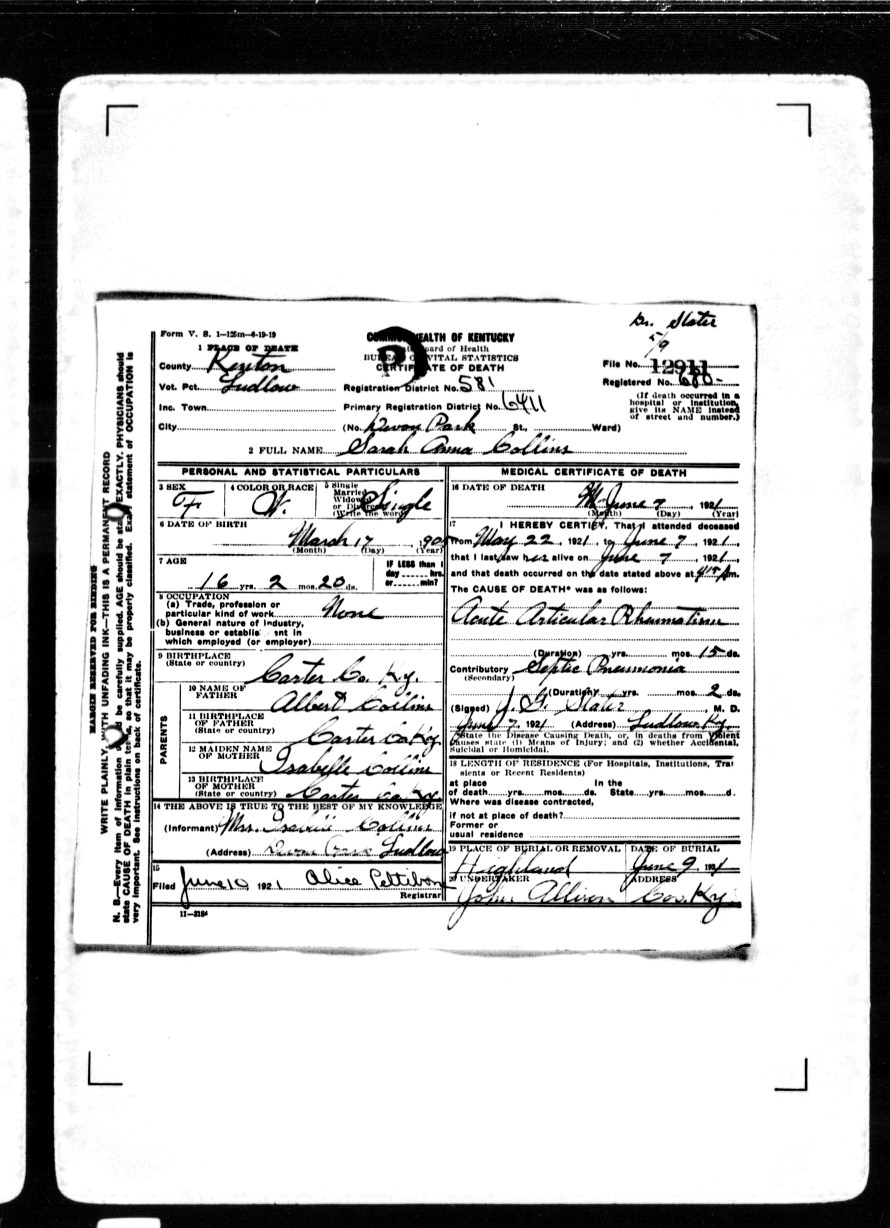 Dr. Slater
5/9
Form V. S. 1-125m-6-19-19
COMMONWEALTH OF KENTUCKY
1 PLACE OF DEATH
State Board of Health
BUREAU OF VITAL STATISTICS
CERTIFICATE OF DEATH
County Kenton
File No. 12911
Vot. Pct. Ludlow
Registration District No. 581
Registered No. 680-
Inc. Town
Primary Registration District No. 6411
(If death occurred in a hospital or institution, give its NAME instead of street and number.)
City (No. Devon Park St., Ward)
2 FULL NAME Sarah Anna Collins
PERSONAL AND STATISTICAL PARTICULARS
3 SEX F
4 COLOR OR RACE W.
5 Single Married Widowed or Divorced (Write the word) Single
6 DATE OF BIRTH
March 17, 905
(Month) (Day) (Year)
7 AGE
16 yrs. 2 mos. 20 ds.
IF LESS than 1 day hrs. or min?
8 OCCUPATION
(a) Trade, profession or particular kind of work None
(b) General nature of industry, business or establishment in which employed (or employer)
9 BIRTHPLACE
(State or country) Carter Co. Ky.
PARENTS
10 NAME OF FATHER Albert Collins
11 BIRTHPLACE OF FATHER
(State or country) Carter Co Ky
12 MAIDEN NAME OF MOTHER Isabelle Collins
13 BIRTHPLACE OF MOTHER
(State or country) Carter Co. Ky.
14 THE ABOVE IS TRUE TO THE BEST OF MY KNOWLEDGE
(Informant) Mrs. Collins
(Address) Ludlow
15
Filed June 10 1921 Alice Pettibon
Registrar
11-3184
MEDICAL CERTIFICATE OF DEATH
16 DATE OF DEATH
June 7, 1921
(Month) (Day) (Year)
17 I HEREBY CERTIFY, That I attended deceased
from May 22, 1921, to June 7, 1921,
that I last saw her alive on June 7, 1921,
and that death occurred on the date stated above at m.
The CAUSE OF DEATH* was as follows:
Acute Articular Rheumatism
(Duration) yrs. mos. 15 ds.
Contributory Septic Pneumonia
(Secondary)
(Duration) yrs. mos. 2 ds.
(Signed) J. G. Slater, M. D.
June 7, 1921 (Address) Ludlow Ky.
*State the Disease Causing Death, or, in deaths from Violent
Causes state (1) Means of Injury; and (2) whether Accidental,
Suicidal or Homicidal.
18 LENGTH OF RESIDENCE (For Hospitals, Institutions, Tran
sients or Recent Residents)
at place In the
of death yrs. mos. ds. State yrs. mos. d.
Where was disease contracted,
if not at place of death?
Former or
usual residence
19 PLACE OF BURIAL OR REMOVAL
Highland
DATE OF BURIAL
June 9, 1921
20 UNDERTAKER
John Allison
ADDRESS
Cov. Ky.
MARGIN RESERVED FOR BINDING
WRITE PLAINLY, WITH UNFADING INK—THIS IS A PERMANENT RECORD
N. B.—Every item of information should be carefully supplied. AGE should be stated EXACTLY. PHYSICIANS should
state CAUSE OF DEATH in plain terms, so that it may be properly classified. Exact statement of OCCUPATION is
very important. See instructions on back of certificate.